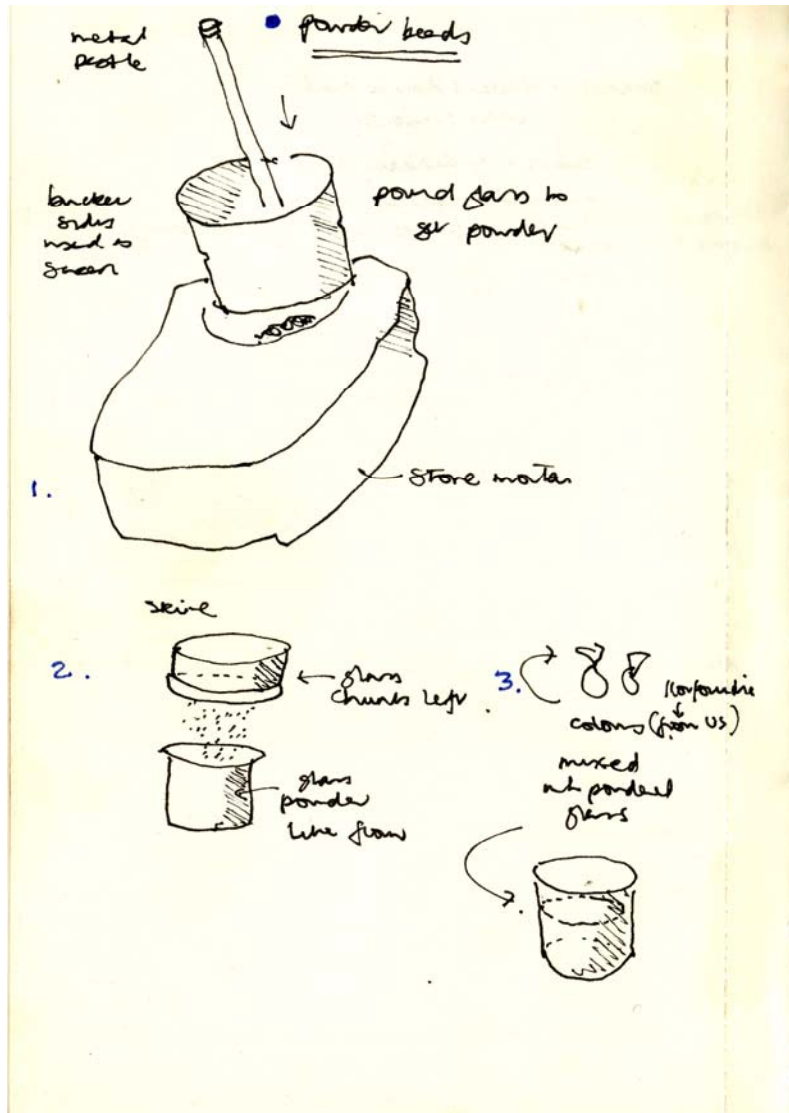 metal
pestle
powder beads
bucket
sides
used to
screen
pound glass to
get powder
stone mortar
1.
seive
2.
glass
chunks left
glass
powder
like flour
3.
colours (from US)
mixed
with powdered
glass